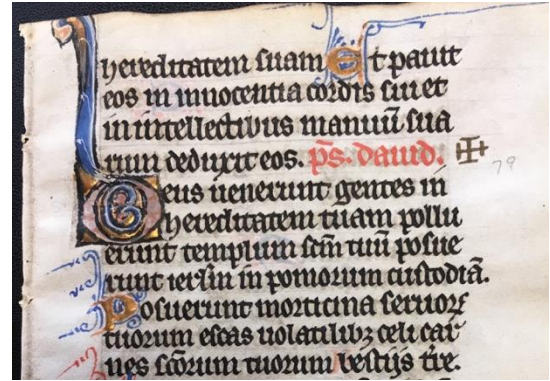 hereditatem suam Et pauit
eos in innocentia cordis sui et
in intellectibus manuū sua
rum deduxit eos. p̄s. dauid.
79
Deus uenerunt gentes in
hereditatem tuam pollu
erunt templum sc̄m tuū posue
runt ierl̄m in pomorum custodiā.
Posuerunt morticina seruoꝝ
tuorum escas uolatilibꝫ celi car
nes sc̄orum tuorum bestijs tr̄e.